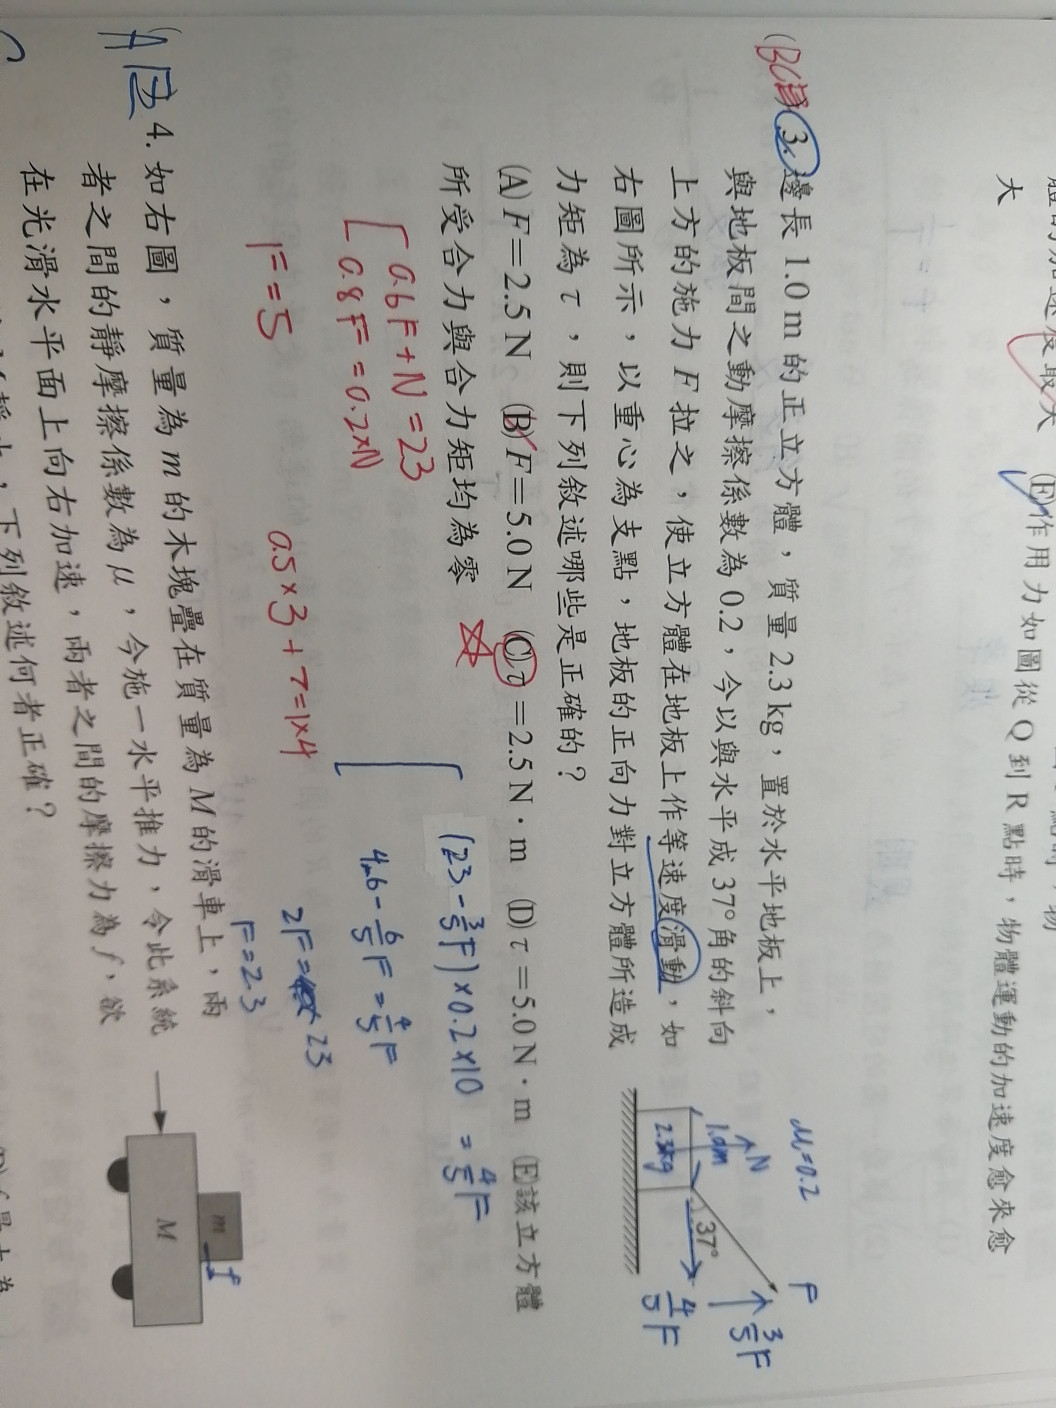 大
(E)作用力如圖從 Q 到 R 點時，物體運動的加速度愈來愈
3. 邊長 1.0 m 的正立方體，質量 2.3 kg，置於水平地板上，
與地板間之動摩擦係數為 0.2，今以與水平成 37° 角的斜向
上方的施力 F 拉之，使立方體在地板上作等速度滑動，如
右圖所示，以重心為支點，地板的正向力對立方體所造成
力矩為 τ，則下列敘述哪些是正確的？
(A) F＝2.5 N (B) F＝5.0 N (C) τ＝2.5 N·m (D) τ＝5.0 N·m (E)該立方體
所受合力與合力矩均為零
μ=0.2
F
N
1.0m
2.3kg
37°
3/5F
4/5F
0.6F+N=23
0.8F=0.2×N
F=5
0.5×3+τ=1×4
(23-3/5F)×0.2×10 = 4/5F
4.6-6/5F=4/5F
2F= 23
F=2.3
4. 如右圖，質量為 m 的木塊疊在質量為 M 的滑車上，兩
者之間的靜摩擦係數為 μ，今施一水平推力，令此系統
在光滑水平面上向右加速，兩者之間的摩擦力為 f，欲
下列敘述何者正確？
m
f
M